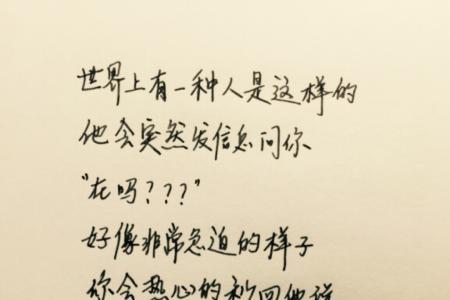 世界上有一种人是这样的
他会突然发信息问你
“在吗???”
好像非常急迫的样子
你会热心的秒回他说